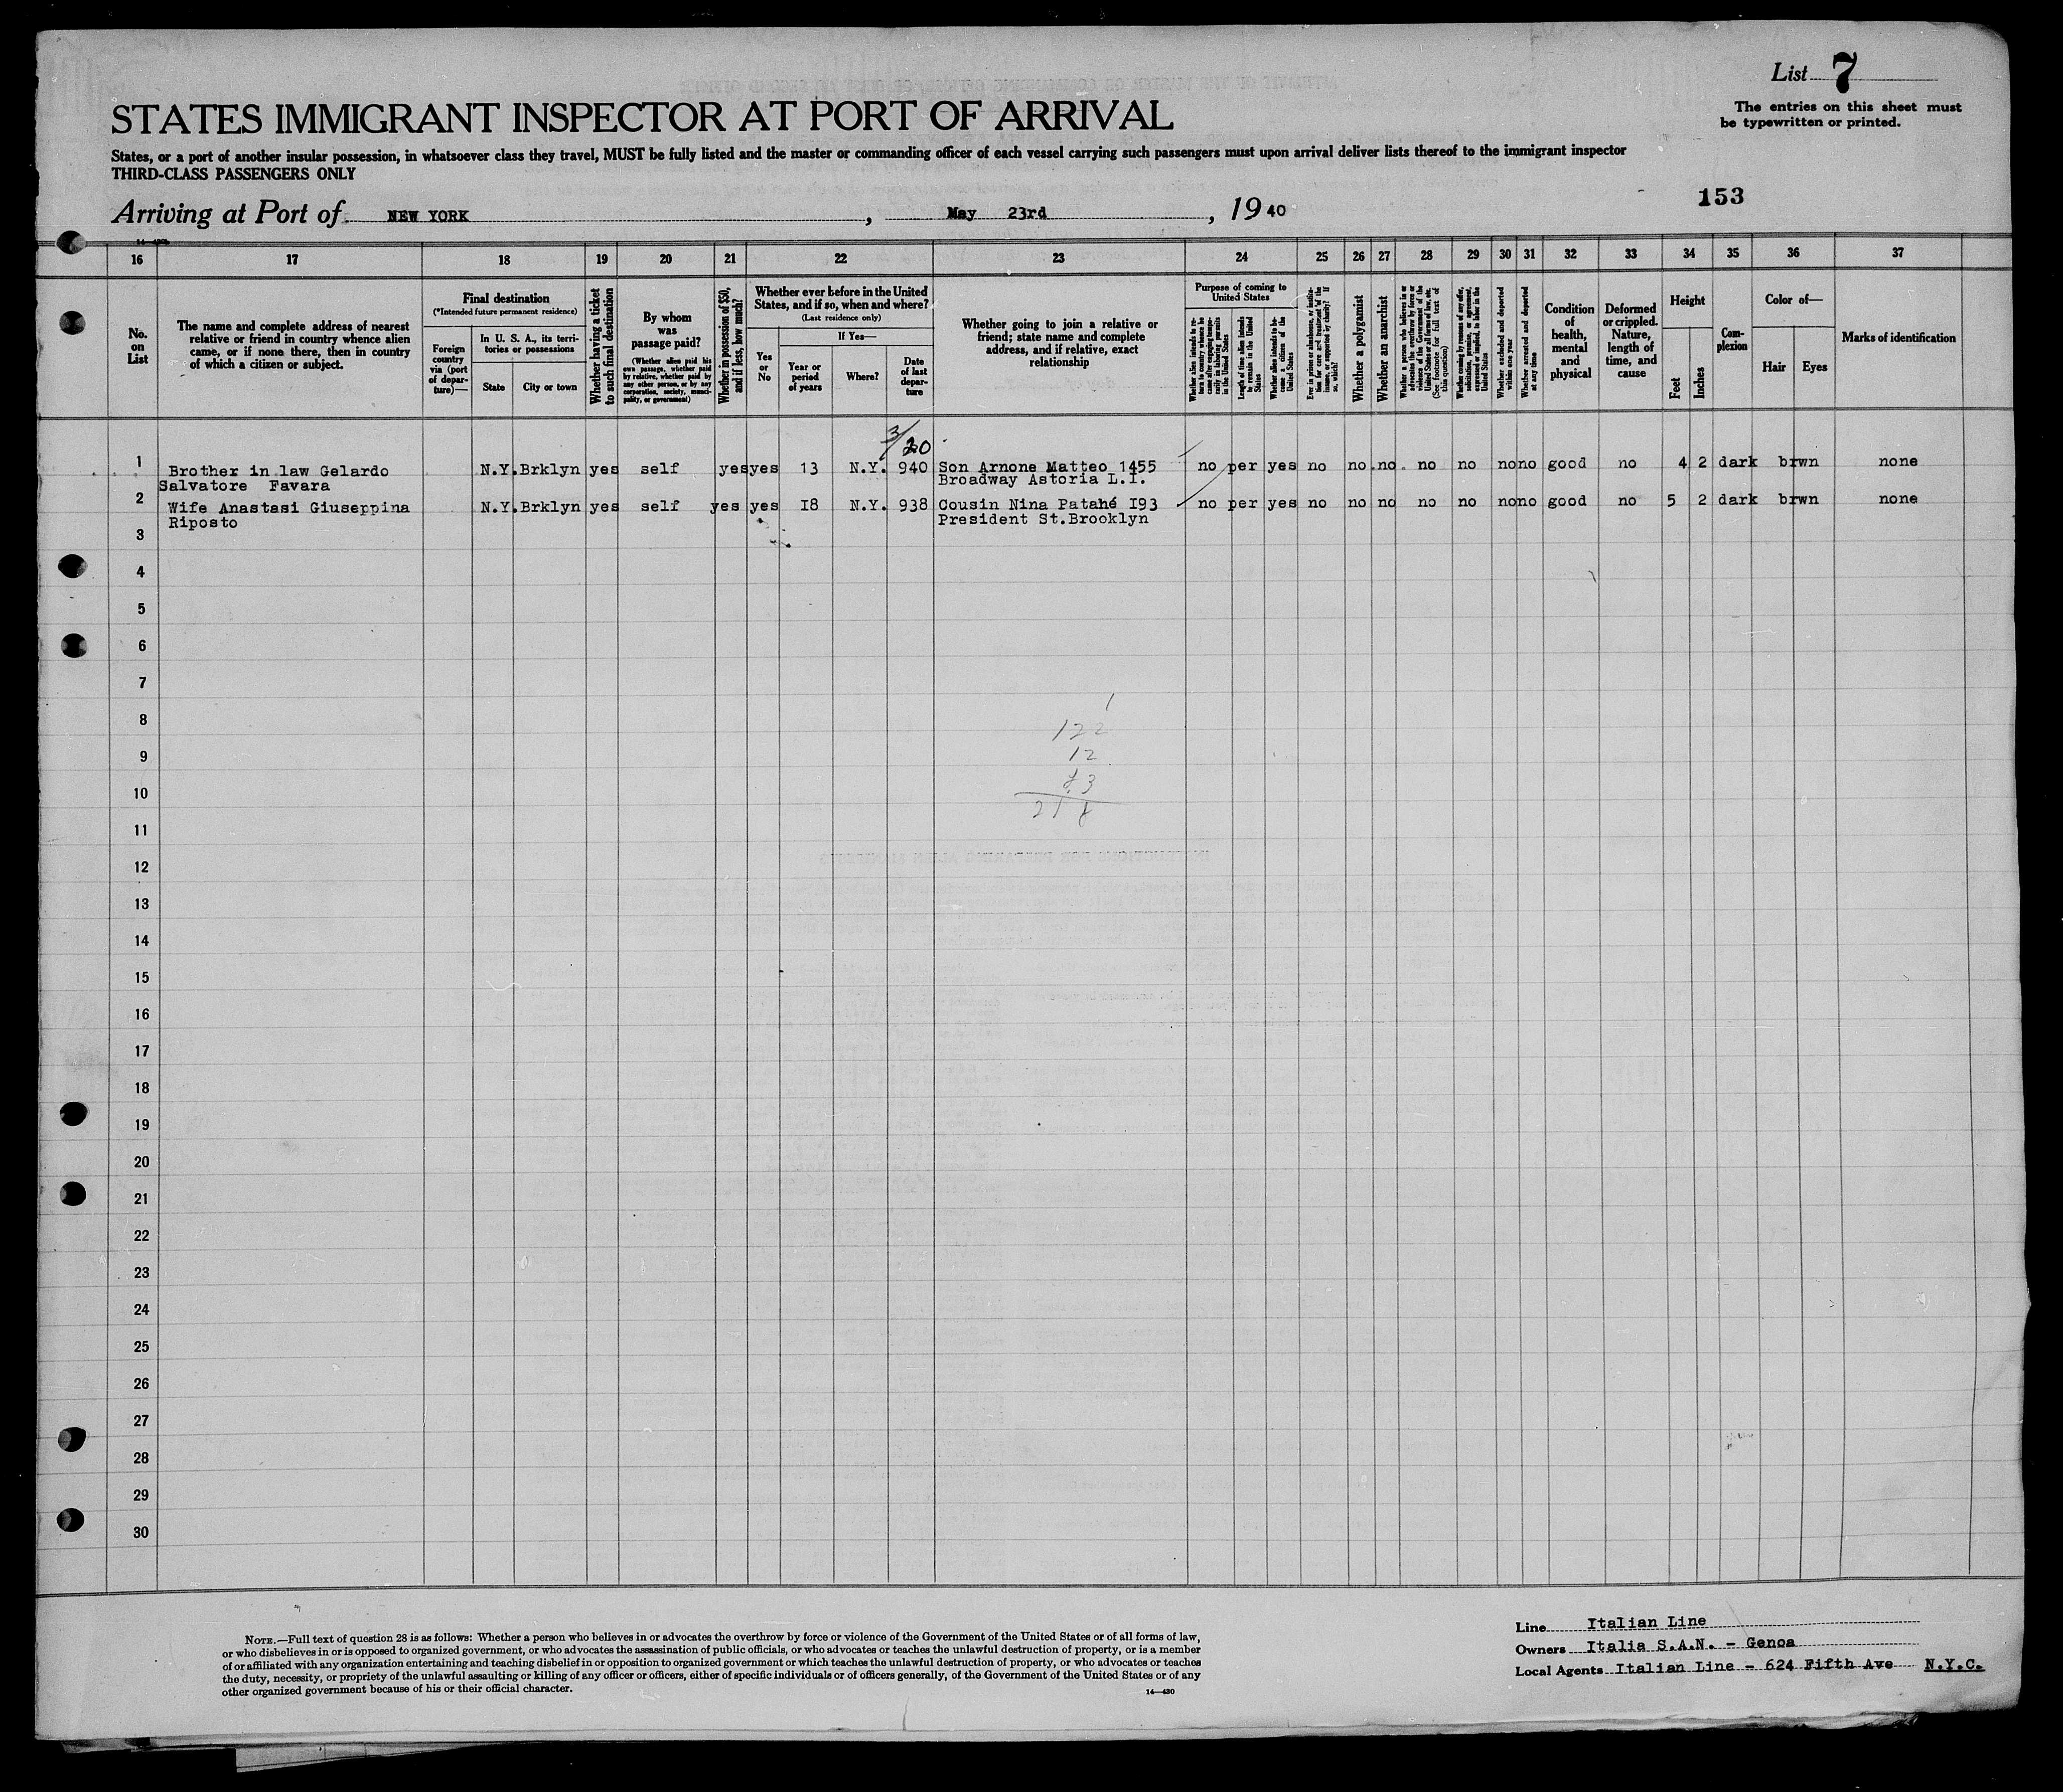 List 7
The entries on this sheet must
be typewritten or printed.
STATES IMMIGRANT INSPECTOR AT PORT OF ARRIVAL
States, or a port of another insular possession, in whatsoever class they travel, MUST be fully listed and the master or commanding officer of each vessel carrying such passengers must upon arrival deliver lists thereof to the immigrant inspector
THIRD-CLASS PASSENGERS ONLY
153
Arriving at Port of NEW YORK, May 23rd, 1940
16 17 18 19 20 21 22 23 24 25 26 27 28 29 30 31 32 33 34 35 36 37
No.
on
List
The name and complete address of nearest
relative or friend in country whence alien
came, or if none there, then in country
of which a citizen or subject.
Final destination
(*Intended future permanent residence)
Foreign
country
via (port
of depar-
ture)—
In U. S. A., its terri-
tories or possessions
State
City or town
Whether having a ticket
to such final destination
By whom
was
passage paid?
(Whether alien paid his
own passage, whether paid
by relative, whether paid by
any other person, or by any
corporation, society, munici-
pality, or government)
Whether in possession of $50,
and if less, how much?
Whether ever before in the United
States, and if so, when and where?
(Last residence only)
Yes
or
No
If Yes—
Year or
period
of years
Where?
Date
of last
depar-
ture
Whether going to join a relative or
friend; state name and complete
address, and if relative, exact
relationship
Purpose of coming to
United States
Length of time alien intends
to remain in the United
States
Whether alien intends to be-
come a citizen of the
United States
Whether a polygamist
Whether an anarchist
(See footnote for full text of
this question)
Whether excluded and deported
within one year
Whether arrested and deported
at any time
Condition
of
health,
mental
and
physical
Deformed
or crippled.
Nature,
length of
time, and
cause
Height
Feet
Inches
Com-
plexion
Color of—
Hair
Eyes
Marks of identification
3/20
1 Brother in law Gelardo N.Y. Brklyn yes self yes yes 13 N.Y. 940 Son Arnone Matteo 1455 no per yes no no no no no no no good no 4 2 dark brwn none
Salvatore Favara Broadway Astoria L.I.
2 Wife Anastasi Giuseppina N.Y. Brklyn yes self yes yes I8 N.Y. 938 Cousin Nina Patahé I93 no per yes no no no no no no no good no 5 2 dark brwn none
Riposto President St. Brooklyn
3
4
5
6
7
8
9
10
11
12
13
14
15
16
17
18
19
20
21
22
23
24
25
26
27
28
29
30
122
12
NOTE.—Full text of question 28 is as follows: Whether a person who believes in or advocates the overthrow by force or violence of the Government of the United States or of all forms of law,
or who disbelieves in or is opposed to organized government, or who advocates the assassination of public officials, or who advocates or teaches the unlawful destruction of property, or is a member
of or affiliated with any organization entertaining and teaching disbelief in or opposition to organized government or which teaches the unlawful destruction of property, or who advocates or teaches
the duty, necessity, or propriety of the unlawful assaulting or killing of any officer or officers, either of specific individuals or of officers generally, of the Government of the United States or of any
other organized government because of his or their official character.
14—430
Line Italian Line
Owners Italia S.A.N. - Genoa
Local Agents Italian Line - 624 Fifth Ave N.Y.C.